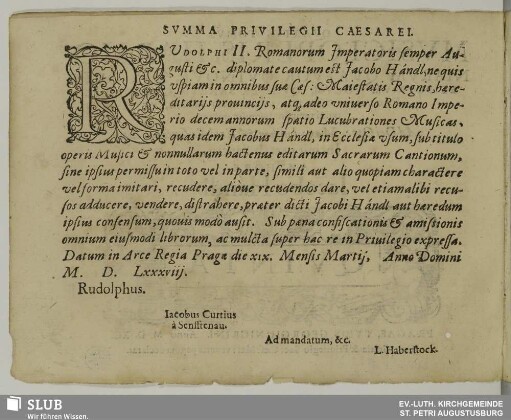 SVMMA PRIVILEGII CAESAREI.
RVDOLPHI II. Romanorum Imperatoris semper Au-
gusti &c. diplomate cautum est Jacobo Händl, ne quis
vspiam in omnibus suæ Cæs: Maiestatis Regnis, hære-
ditarijs prouincijs, atq; adeo vniuerso Romano Impe-
rio decem annorum spatio Lucubrationes Musicas,
quas idem Jacobus Händl, in Ecclesiæ vsum, sub titulo
operis Musici & nonnullarum hactenus editarum Sacrarum Cantionum,
sine ipsius permissu in toto vel in parte, simili aut alio quopiam charactere
vel forma imitari, recudere, alioue recudendos dare, vel etiam alibi recu-
sos adducere, vendere, distrahere, præter dicti Jacobi Händl aut hæredum
ipsius consensum, quouis modo ausit. Sub pœna confiscationis & amissionis
omnium eiusmodi librorum, ac mulcta super hac re in Priuilegio expressa.
Datum in Arce Regia Pragæ die xix. Mensis Martij, Anno Domini
M. D. Lxxxviij.
Rudolphus.
Iacobus Curtius
à Senfftenau.
Ad mandatum, &c.
L. Haberstock.
SLUB
Wir führen Wissen.
EV.-LUTH. KIRCHGEMEINDE
ST. PETRI AUGUSTUSBURG